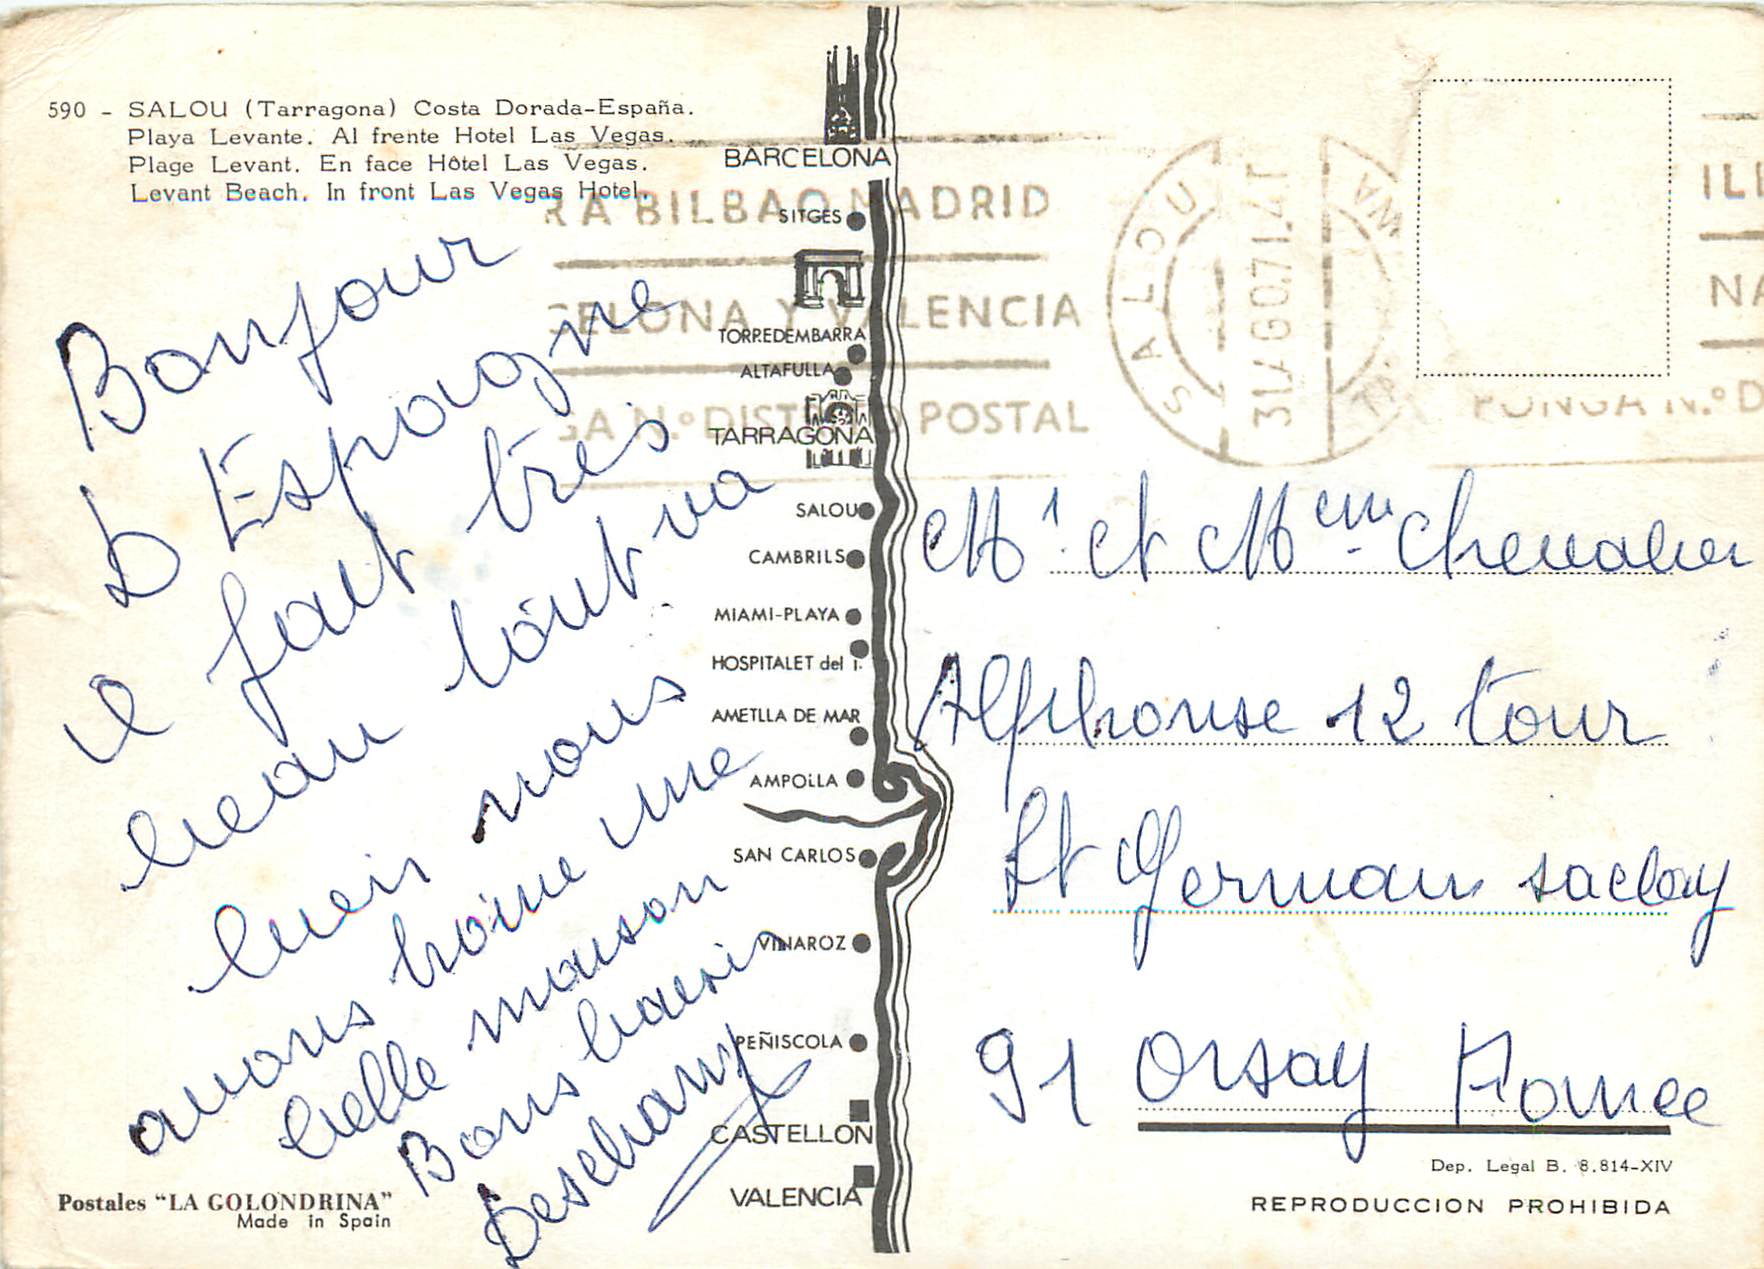 590 - SALOU (Tarragona) Costa Dorada-España.
Playa Levante. Al frente Hotel Las Vegas.
Plage Levant. En face Hôtel Las Vegas.
Levant Beach. In front Las Vegas Hotel.
Bonjour
D Espagne
il fait très
beau tout va
bien nous
avons loué une
belle maison
Bons baisers
Deschamp
Postales "LA GOLONDRINA"
Made in Spain
BARCELONA
SITGES
TORREDEMBARRA
ALTAFULLA
TARRAGONA
SALOU
CAMBRILS
MIAMI-PLAYA
HOSPITALET del I.
AMETLLA DE MAR
AMPOLLA
SAN CARLOS
VINAROZ
PEÑISCOLA
CASTELLON
VALENCIA
RA BILBAO MADRID
CELONA Y VALENCIA
GA N.º DISTRITO POSTAL
SALOU
31 AGO.71.4T
IL
NA
PONGA N.º D
Mr et Mme Chevalier
Alphonse 12 tour
St Germain saclay
91 Orsay France
Dep. Legal B. 8.814-XIV
REPRODUCCION PROHIBIDA